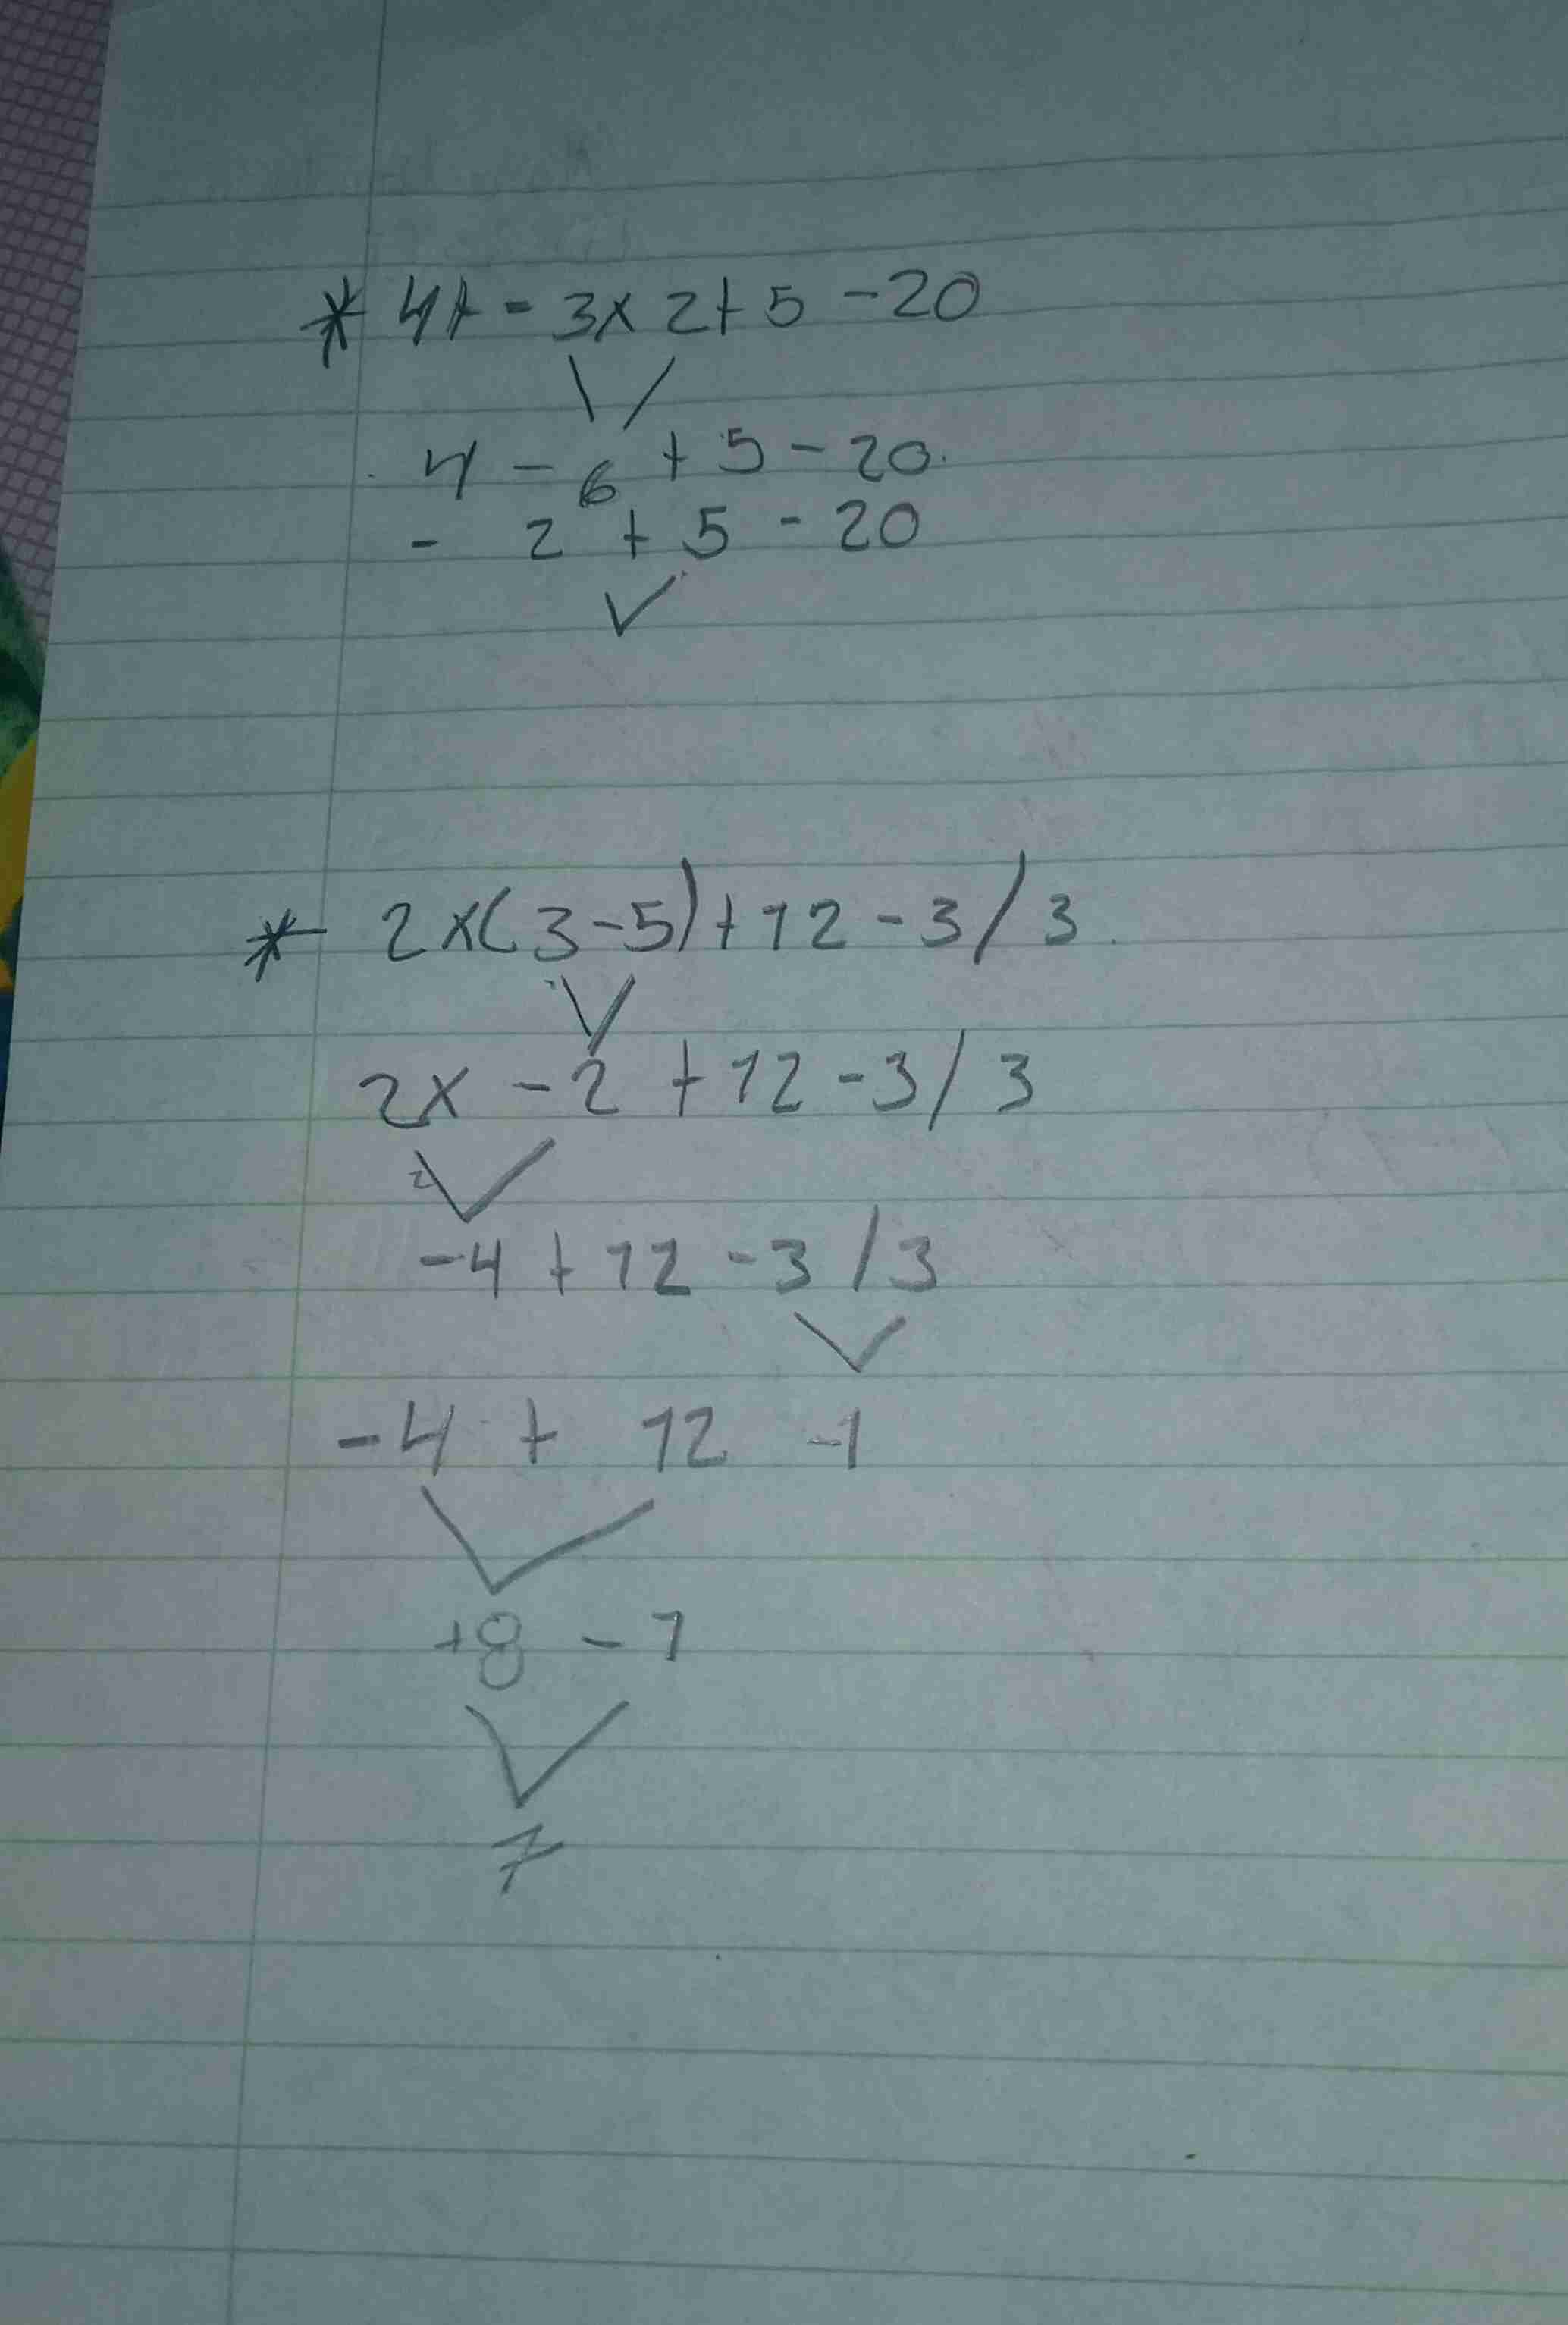 * 4+ - 3x2+5-20
4-6+5-20
- 2+5-20
* 2x(3-5)+12-3/3
2x -2 +12-3/3
-4+12-3/3
-4 + 12 -1
+8 - 1
7